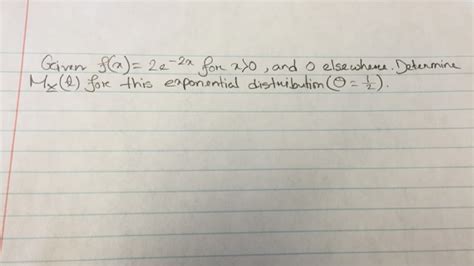 Given f(x) = 2e^-2x for x>0, and 0 elsewhere. Determine
M_X(t) for this exponential distribution (θ = 1/2).